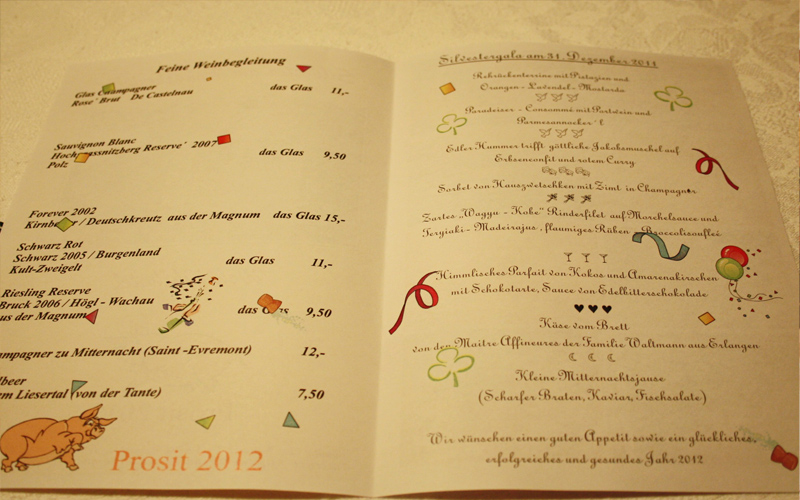 Feine Weinbegleitung
Glas Champagner das Glas 11,-
Rose´ Brut De Castelnau
Sauvignon Blanc
Reserve´ 2007 das Glas 9,50
Polz
Forever 2002
/ Deutschkreutz aus der Magnum das Glas 15,-
Schwarz Rot
Schwarz 2005 / Burgenland das Glas 11,-
Kult-Zweigelt
Riesling Reserve
Bruck 2006 / Högl - Wachau das Glas 9,50
aus der Magnum
ampagner zu Mitternacht (Saint -Evremont) 12,-
lbeer
m Liesertal (von der Tante) 7,50
Prosit 2012
Silvestergala am 31. Dezember 2011
Rehrückenterrine mit Pistazien und
Orangen - Lavendel - Mostarda
Paradeiser - Consommé mit Portwein und
Parmesannockerl
Edler Hummer trifft göttliche Jakobsmuschel auf
Erbsenconfit und rotem Curry
Sorbet von Hauszwetschken mit Zimt in Champagner
Zartes „Wagyu - Kobe“ Rinderfilet auf Morchelsauce und
Teryiaki - Madeirajus , flaumiges Rüben - Broccolisouflée
Himmlisches Parfait von Kokos und Amarenakirschen
mit Schokotarte, Sauce von Edelbitterschokolade
Käse vom Brett
von den Maitre Affineures der Familie Waltmann aus Erlangen
Kleine Mitternachtsjause
(Scharfer Braten, Kaviar, Fischsalate)
Wir wünschen einen guten Appetit sowie ein glückliches,
erfolgreiches und gesundes Jahr 2012